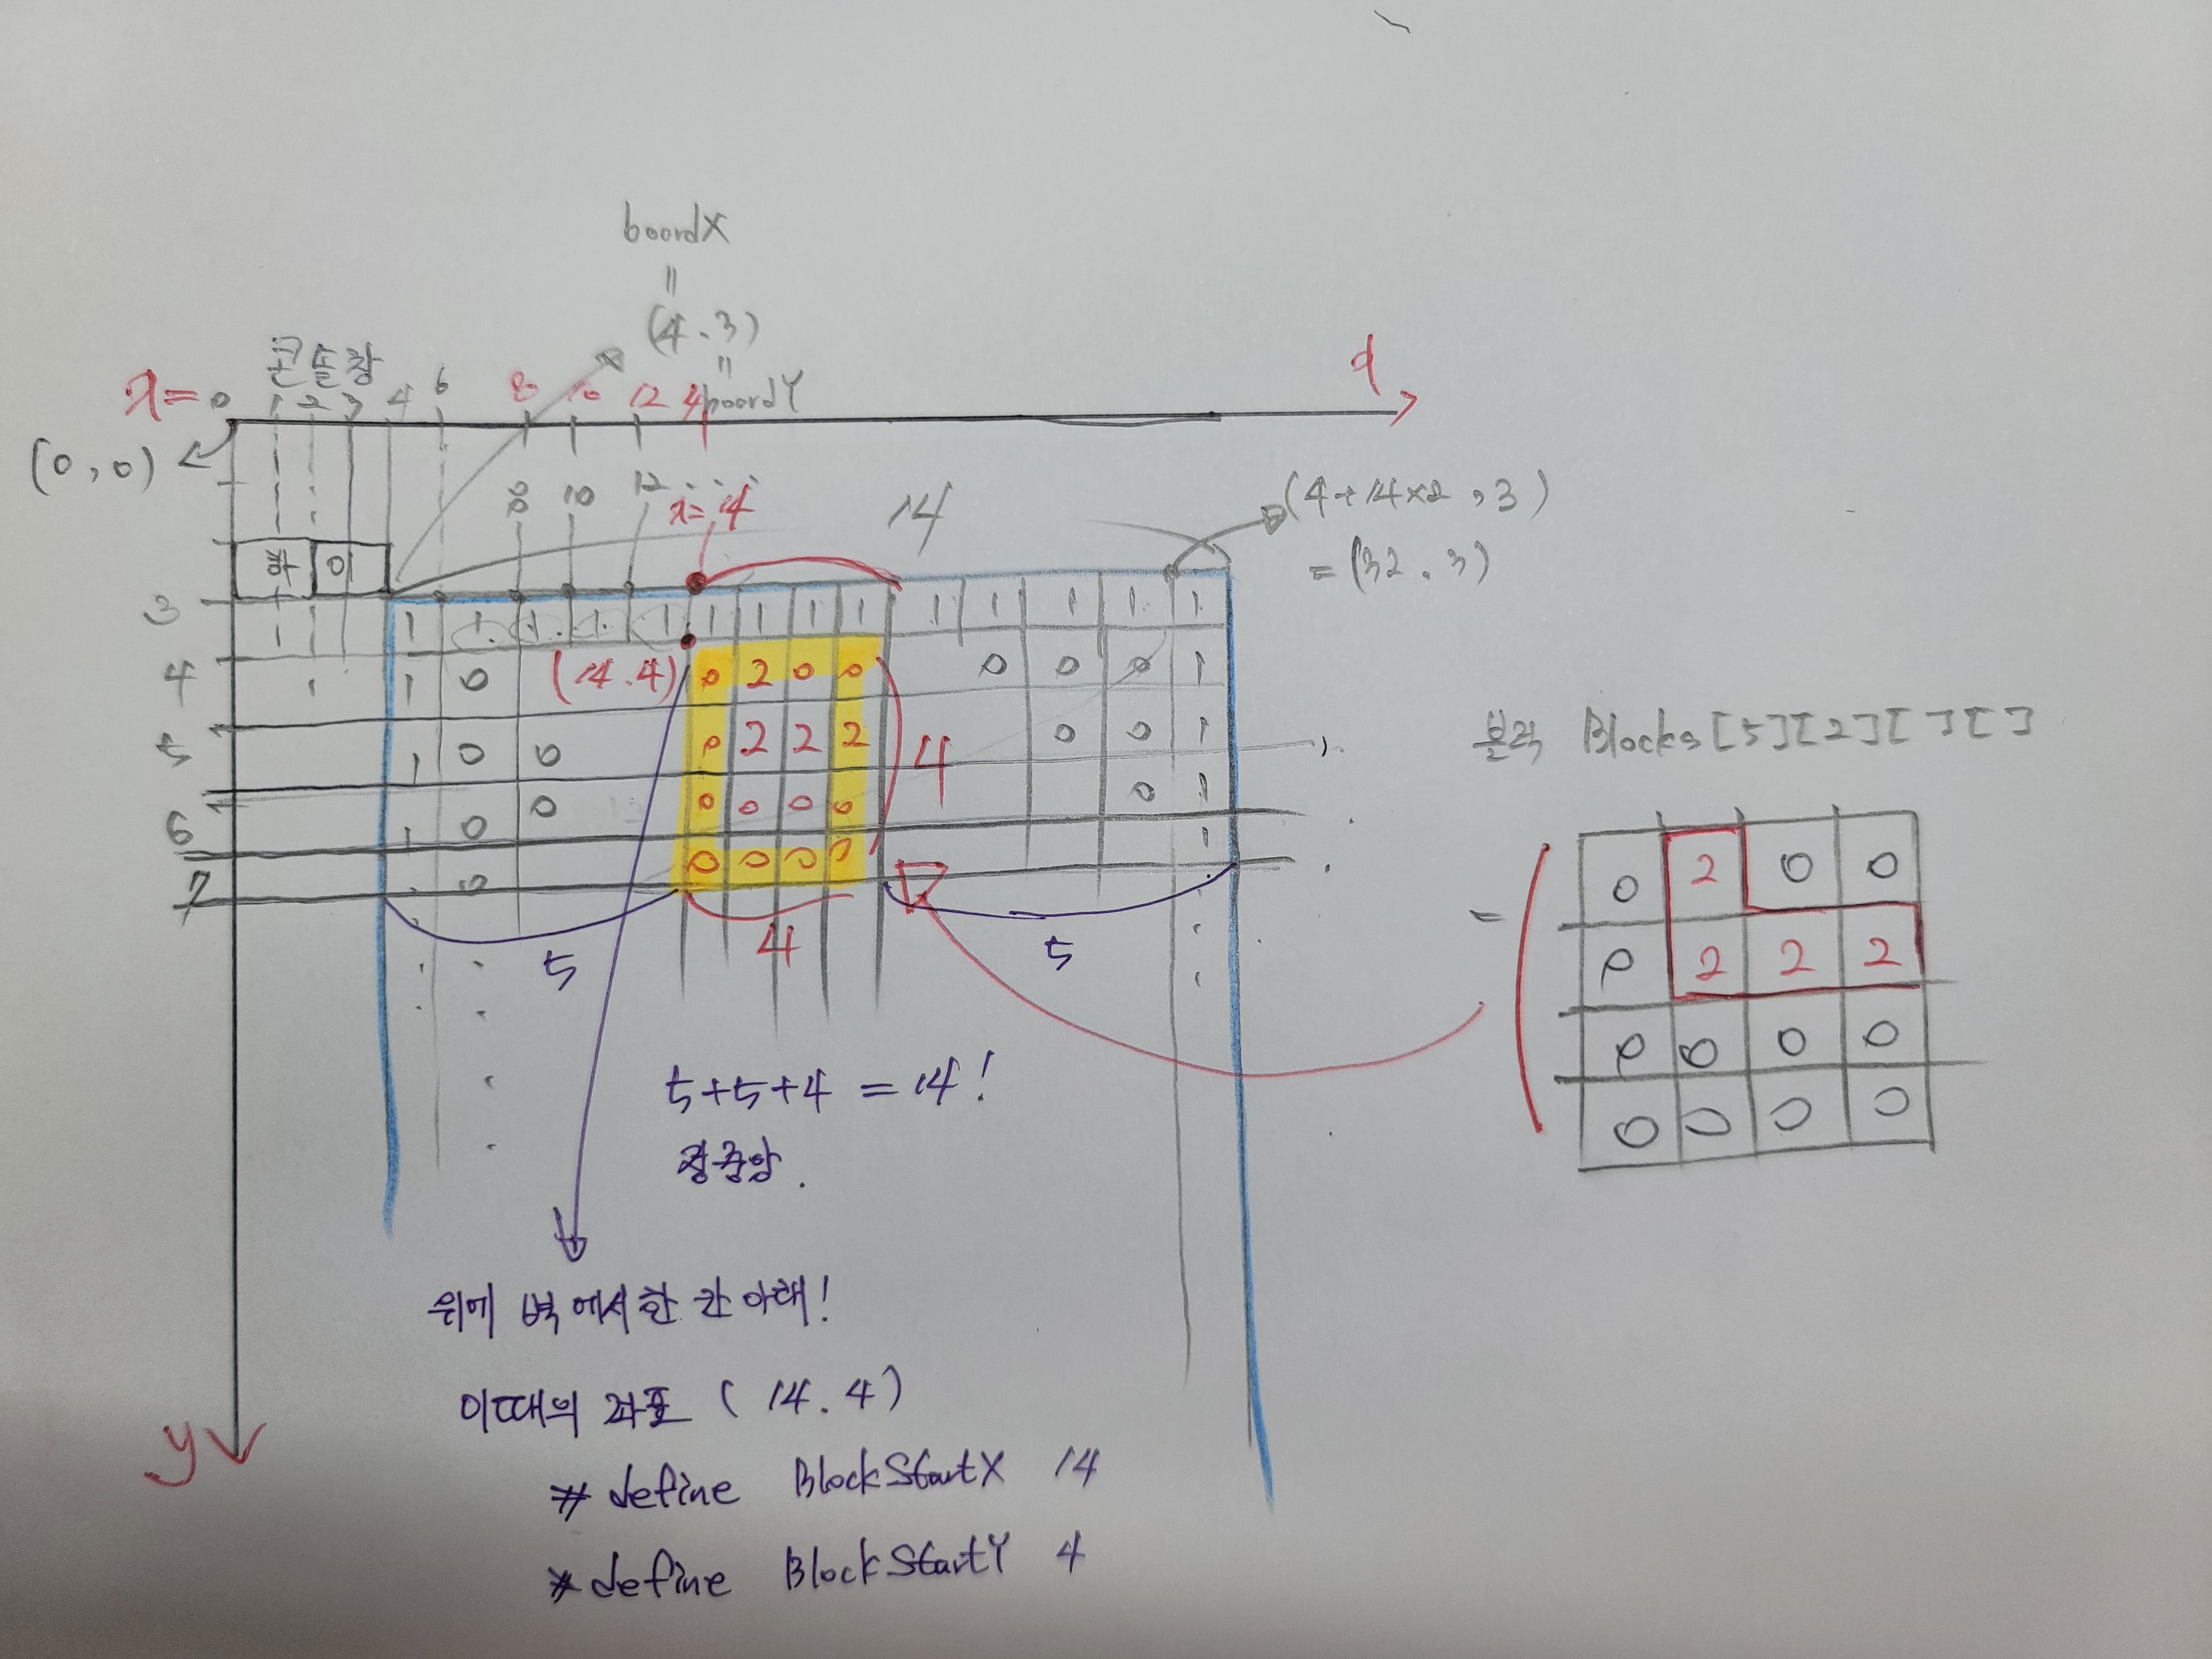 boordX
=
(4.3)
=
boordY
콘솔창
x=0 1 2 3 4 6 8 10 12 14
x
(0,0)
8 10 12 . . .
x=14
14
(4+14×2,3)
=(32.3)
하 이
3 1 1 1 1 1 1 1 1 1 1 1 1 1 1
4 1 0 (14.4) 0 2 0 0 0 0 0 1
5 1 0 0 0 2 2 2 4 0 0 1
6 1 0 0 0 0 0 0 0 1
7 0 0 0 0 0 1
5 4 5
블럭 Blocks[5][2][ ][ ]
=
0 2 0 0
0 2 2 2
0 0 0 0
0 0 0 0
5+5+4 = 14!
정중앙.
위에 벽에서 한 칸 아래!
이때의 좌표 (14.4)
# define BlockStartX 14
# define BlockStartY 4
y